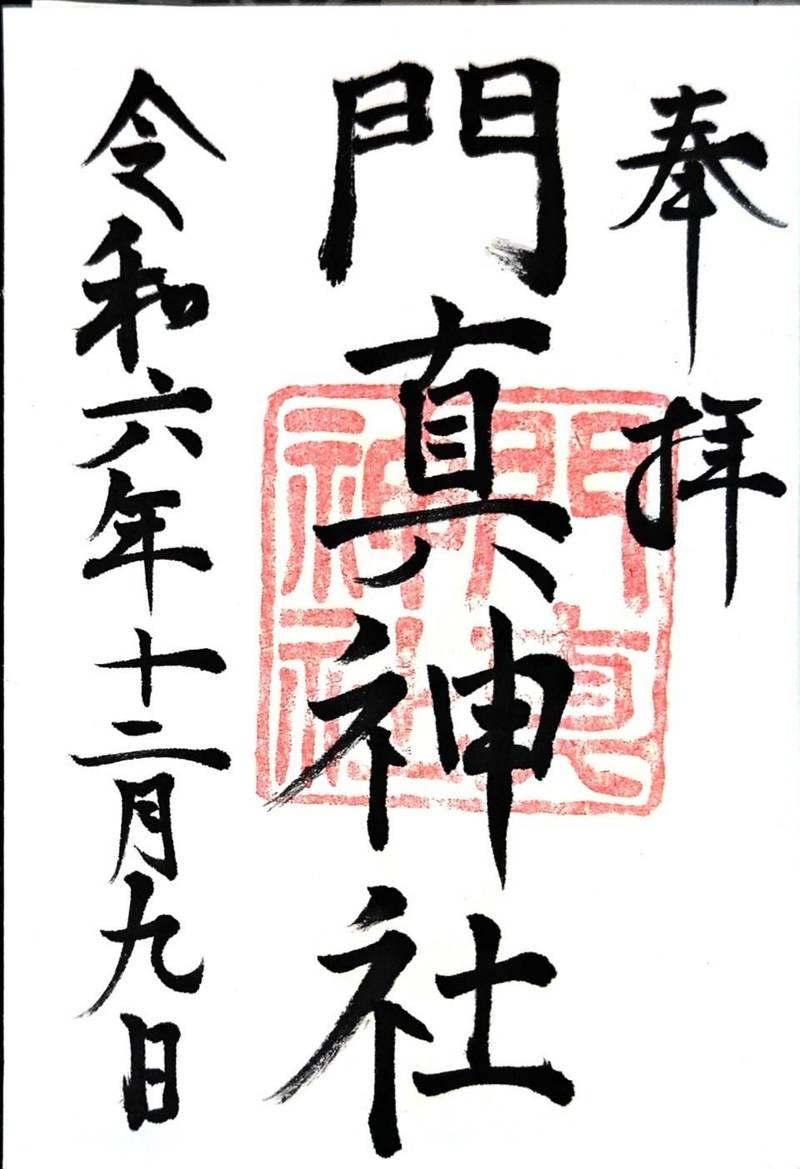 奉拝
門真神社
門真
神社
令和六年十二月九日